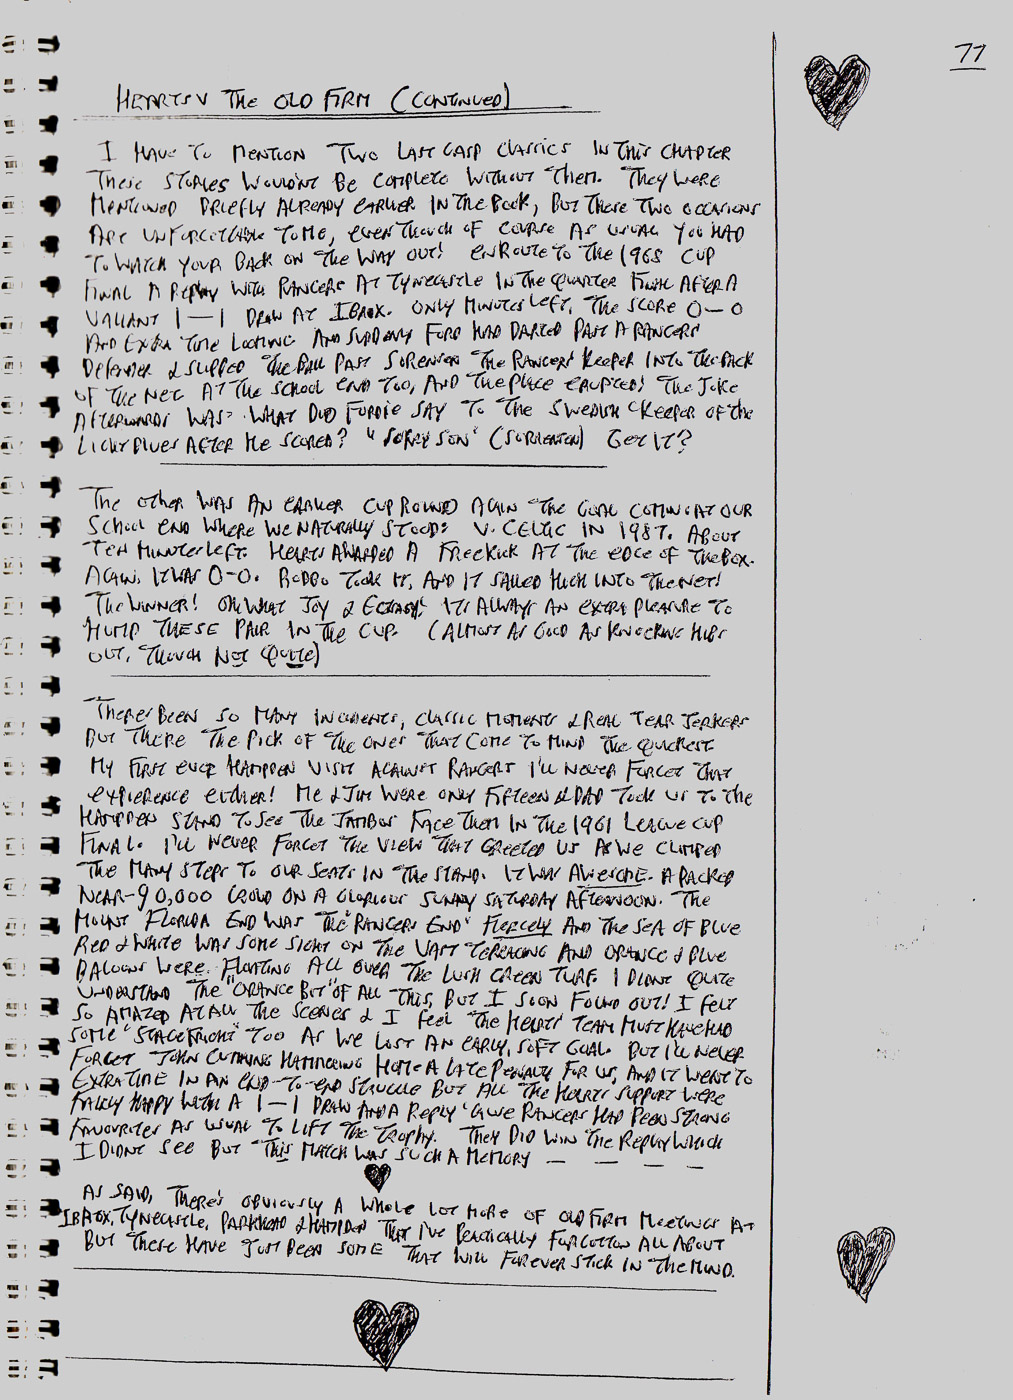 77
HEARTS V THE OLD FIRM (CONTINUED)
I HAVE TO MENTION TWO LAST GASP CLASSICS IN THIS CHAPTER
THESE STORIES WOULDN'T BE COMPLETE WITHOUT THEM. THEY WERE
MENTIONED BRIEFLY ALREADY EARLIER IN THE BOOK, BUT THESE TWO OCCASIONS
ARE UNFORGETTABLE TO ME, EVEN THOUGH OF COURSE AS USUAL YOU HAD
TO WATCH YOUR BACK ON THE WAY OUT! ENROUTE TO THE 1968 CUP
FINAL A REPLAY WITH RANGERS AT TYNECASTLE IN THE QUARTER FINAL AFTER A
VALIANT 1-1 DRAW AT IBROX. ONLY MINUTES LEFT, THE SCORE 0-0
AND EXTRA TIME LOOMING AND SUDDENLY FORD HAD DARTED PAST A RANGERS
DEFENDER & SLIPPED THE BALL PAST SORENSEN THE RANGERS' KEEPER INTO THE BACK
OF THE NET AT THE SCHOOL END TOO, AND THE PLACE ERUPTED! THE JOKE
AFTERWARDS WAS: WHAT DID FORDIE SAY TO THE SWEDISH KEEPER OF THE
LIGHT BLUES AFTER HE SCORED? "SORRY SON" (SORRENSEN) GET IT?
THE OTHER WAS AN EARLIER CUP ROUND AGAIN THE GOAL COMING AT OUR
SCHOOL END WHERE WE NATURALLY STOOD: V. CELTIC IN 1987. ABOUT
TEN MINUTES LEFT. HEARTS AWARDED A FREE KICK AT THE EDGE OF THE BOX.
AGAIN, IT WAS 0-0. ROBBO TOOK IT, AND IT SAILED HIGH INTO THE NET!
THE WINNER! OH WHAT JOY & ECSTASY! ITS ALWAYS AN EXTRA PLEASURE TO
HUMP THESE PAIR IN THE CUP. (ALMOST AS GOOD AS KNOCKING HIBS
OUT, THOUGH NOT QUITE)
THERES BEEN SO MANY INCIDENTS, CLASSIC MOMENTS & REAL TEAR JERKERS
BUT THERE THE PICK OF THE ONES THAT COME TO MIND THE QUICKEST
MY FIRST EVER HAMPDEN VISIT AGAINST RANGERS I'LL NEVER FORGET THAT
EXPIERENCE EITHER! ME & JIM WERE ONLY FIFTEEN & DAD TOOK US TO THE
HAMPDEN STAND TO SEE THE JAMBOS FACE THEM IN THE 1961 LEAGUE CUP
FINAL. I'LL NEVER FORGET THE VIEW THAT GREETED US AS WE CLIMBED
THE MANY STEPS TO OUR SEATS IN THE STAND. IT WAS AWESOME. A PACKED
NEAR-90,000 CROWD ON A GLORIOUS SUNNY SATURDAY AFTERNOON. THE
MOUNT FLORIDA END WAS THE 'RANGERS END' FIERCELY AND THE SEA OF BLUE
RED & WHITE WAS SOME SIGHT ON THE VAST TERRACING AND ORANGE & BLUE
BALOONS WERE FLOATING ALL OVER THE LUSH GREEN TURF. I DIDNT QUITE
UNDERSTAND THE "ORANGE BIT" OF ALL THIS, BUT I SOON FOUND OUT! I FELT
SO AMAZED AT ALL THE SCENES & I FEEL THE HEARTS' TEAM MUST HAVE HAD
SOME 'STAGEFRIGHT' TOO AS WE LOST AN EARLY, SOFT GOAL. BUT I'LL NEVER
FORGET JOHN CUMMING HAMMERING HOME A LATE PENALTY FOR US, AND IT WENT TO
EXTRA TIME IN AN END-TO-END STRUGGLE BUT ALL THE HEARTS SUPPORT WERE
FAIRLY HAPPY WITH A 1-1 DRAW AND A REPLY 'CAUSE RANGERS HAD BEEN STRONG
FAVOURITES AS USUAL TO LIFT THE TROPHY. THEY DID WIN THE REPLAY WHICH
I DIDNT SEE BUT THIS MATCH WAS SUCH A MEMORY — — — —
AS SAID, THERE'S OBVIOUSLY A WHOLE LOT MORE OF OLD FIRM MEETINGS AT
IBROX, TYNECASTLE, PARKHEAD & HAMPDEN THAT I'VE PRACTICALLY FORGOTTON ALL ABOUT
BUT THESE HAVE JUST BEEN SOME THAT WILL FOREVER STICK IN THE MIND.